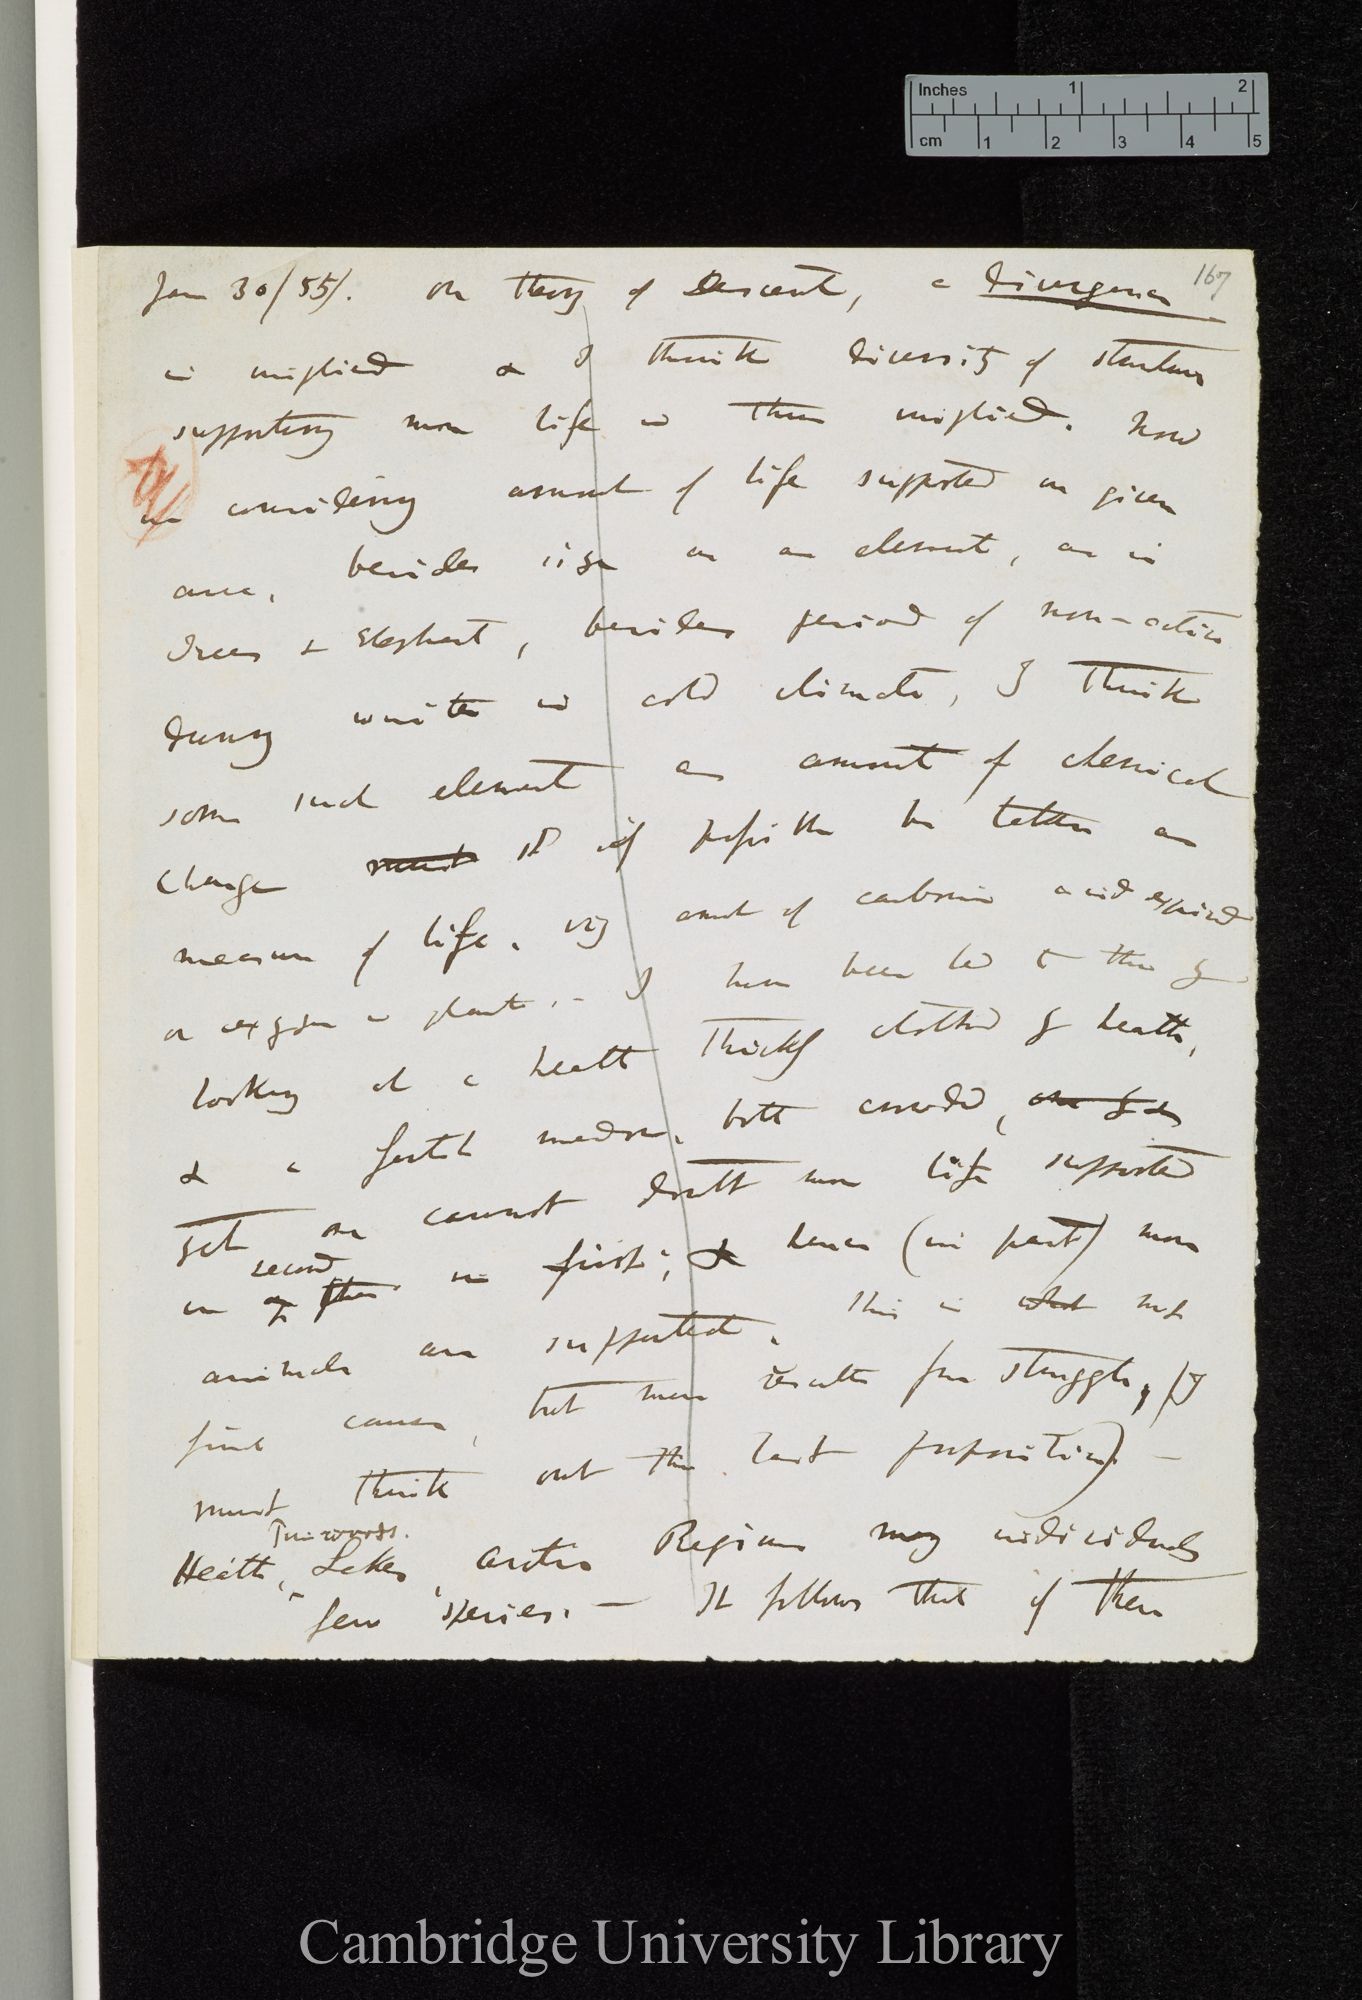 Inches 1 2
cm 1 2 3 4 5
167
Jan 30/55/. On Theory of Descent, a divergence
is implied & I think diversity of structure
supporting more life is thus implied. Now
in considering amount of life supported in given
area, besides size as an element, as in
trees & Elephant, besides period of non-action
during winter in cold climate, I think
some such element as amount of chemical
change must sd if possible be taken as
measure of life, viz amt of carbonic acid expired
or oxygen in plants. - I have been led to this by
looking at a heath thickly clothed by heath,
& a fertile meadow, both crowded,
yet one cannot doubt more life supported
second
in than in first; & hence (in part) more
animals are supported. This is not
final cause, but mere results from struggle, (I
must think out this last proposition) —
Fir-woods.
Heath, Lakes, Arctic Regions many individuals
few species. — It follows that if then
Cambridge University Library